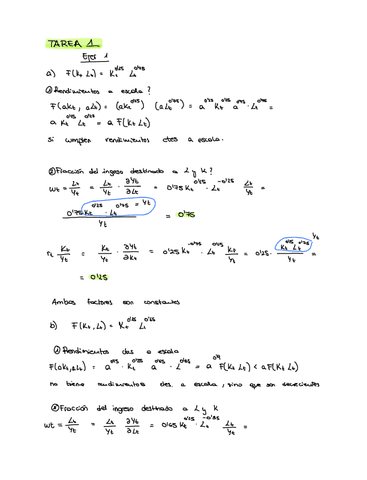 TAREA 1
Ejer 1
a) F(Kt, Lt) = Kt^0'25 Lt^0'75
① Rendimientos a escala?
F(aKt, aLt) = (aKt^0'25) (aLt^0'75) = a^0'25 Kt^0'25 a^0'75 · Lt^0'75 =
a Kt^0'25 Lt^0'75 = a F(Kt Lt)
si cumplen rendimientos ctes a escala.
② Fracción del ingreso destinado a L y K?
wt = Lt/Yt = Lt/Yt · ∂Yt/∂Lt = 0'75 Kt^0'25 · Lt^-0'25 Lt/Yt =
0'75 Kt^0'25 · Lt^0'75 = Yt / Yt = 0'75
rt Kt/Yt = Kt/Yt · ∂Yt/∂Kt = 0'25 Kt^-0'75 · Lt^0'75 Kt/Yt = 0'25 · Kt^0'25 Lt^0'75 / Yt =
= 0'25
Ambos factores son constantes
b) F(Kt, Lt) =
① Rendimientos a escala
= a F(Kt Lt) < a F(Kt Lt)
no tiene rendimientos a escala, sino que son decrecientes
② Fracción del ingreso destinado a L y K
wt = Lt/Yt = Lt/Yt ∂Yt/∂Lt = Lt/Yt =